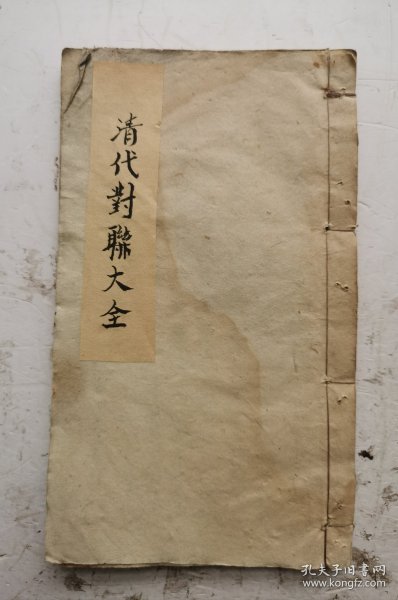 清代對聯大全
孔夫子旧書网
www.kongfz.com